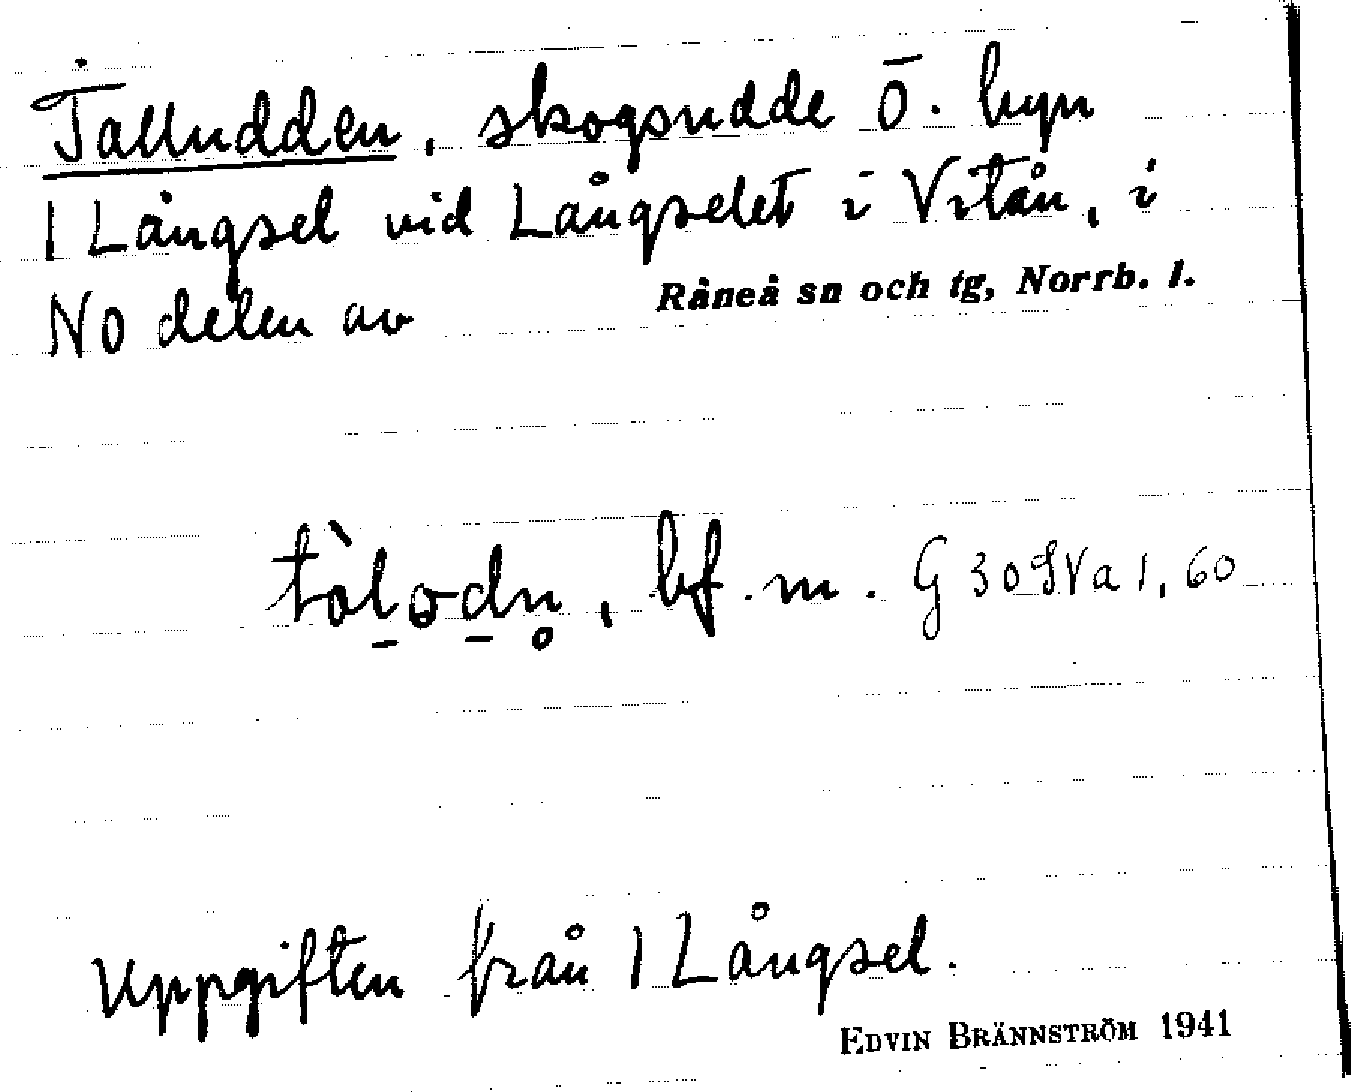 Talludden, skogsudde Ö. byn
1 Långsel vid Långselet i Vitån, i
NO delen av Råneå sn och tg, Norrb. l.
tàl̠ɷd̠n̥, bf. m. G 30 SV a 1, 60
Uppgiften från 1 Långsel.
EDVIN BRÄNNSTRÖM 1941